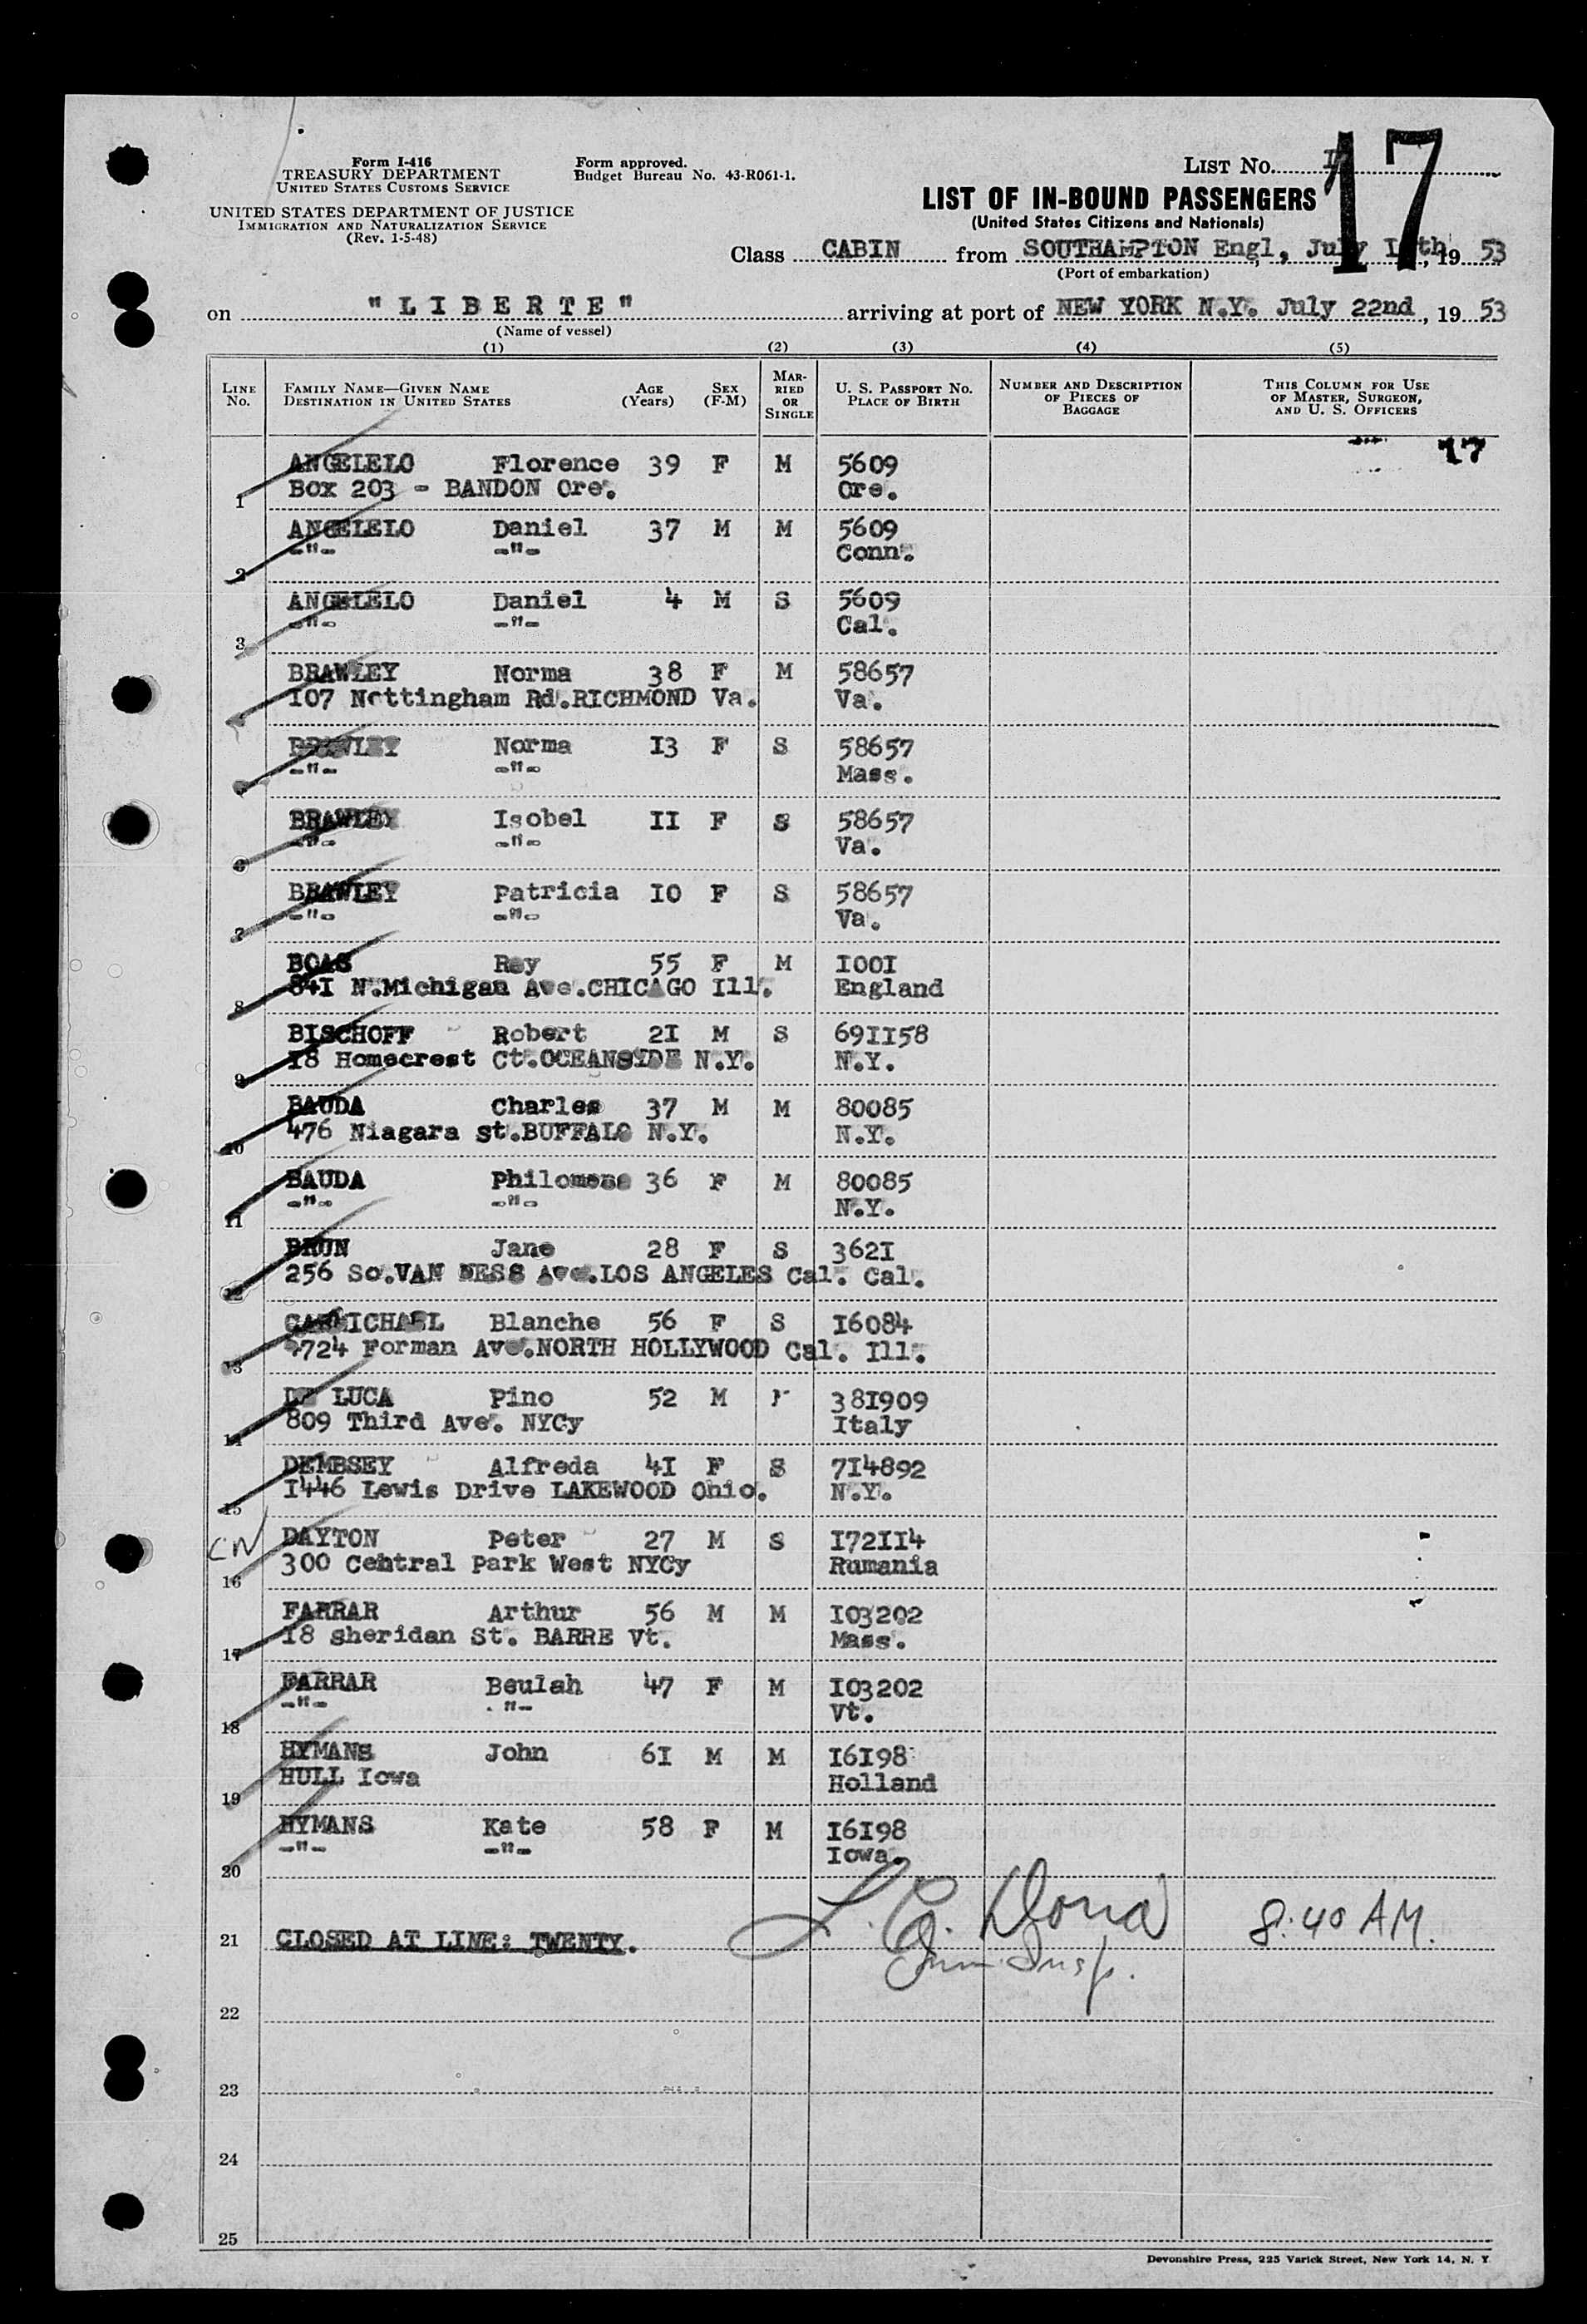 Form I-416
TREASURY DEPARTMENT
UNITED STATES CUSTOMS SERVICE
UNITED STATES DEPARTMENT OF JUSTICE
IMMIGRATION AND NATURALIZATION SERVICE
(Rev. 1-5-48)
Form approved.
Budget Bureau No. 43-R061-1.
LIST No. 17
LIST OF IN-BOUND PASSENGERS
(United States Citizens and Nationals)
Class CABIN from SOUTHAMPTON Engl, July th, 19 53
(Port of embarkation)
on "LIBERTE" arriving at port of NEW YORK N.Y. July 22nd, 19 53
(Name of vessel)
(1) (2) (3) (4) (5)
LINE No. FAMILY NAME—GIVEN NAME DESTINATION IN UNITED STATES AGE (Years) SEX (F-M) MARRIED OR SINGLE U. S. PASSPORT No. PLACE OF BIRTH NUMBER AND DESCRIPTION OF PIECES OF BAGGAGE THIS COLUMN FOR USE OF MASTER, SURGEON, AND U. S. OFFICERS
17
ANGELELO Florence 39 F M 5609
1 Box 203 - BANDON Ore. Ore.
ANGELELO Daniel 37 M M 5609
2 -"- -"- Conn.
ANGELELO Daniel 4 M S 5609
3 -"- -"- Cal.
BRAWLEY Norma 38 F M 58657
4 I07 Nottingham Rd.RICHMOND Va. Va.
BRAWLEY Norma I3 F S 58657
5 -"- -"- Mass.
BRAWLEY Isobel II F S 58657
6 -"- -"- Va.
BRAWLEY Patricia IO F S 58657
7 -"- -"- Va.
BOAS Ray 55 F M I00I
8 84I N.Michigan Ave.CHICAGO Ill. England
BISCHOFF Robert 2I M S 69II58
9 I8 Homecrest Ct.OCEANSIDE N.Y. N.Y.
BAUDA Charles 37 M M 80085
10 476 Niagara st.BUFFALO N.Y. N.Y.
BAUDA Philomene 36 F M 80085
11 -"- -"- N.Y.
BRUN Jane 28 F S 362I
12 256 So.VAN NESS Ave.LOS ANGELES Cal. Cal.
CARMICHAEL Blanche 56 F S I6084
13 4724 Forman Ave.NORTH HOLLYWOOD Cal. Ill.
DE LUCA Pino 52 M 38I909
14 809 Third Ave. NYCy Italy
DEMBSEY Alfreda 4I F S 7I4892
15 I446 Lewis Drive LAKEWOOD Ohio. N.Y.
CN DAYTON Peter 27 M S I72II4
16 300 Central Park West NYCy Rumania
FARRAR Arthur 56 M M I03202
17 I8 Sheridan St. BARRE Vt. Mass.
FARRAR Beulah 47 F M I03202
18 -"- -"- Vt.
HYMANS John 6I M M I6I98
19 HULL Iowa Holland
HYMANS Kate 58 F M I6I98
20 -"- -"- Iowa.
21 CLOSED AT LINE: TWENTY. 8:40 AM.
Imm. Insp.
22
23
24
25
Devonshire Press, 225 Varick Street, New York 14, N. Y.